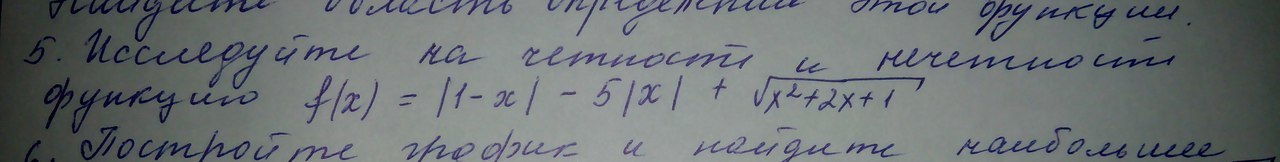 Найдите область определения этой функции.
5. Исследуйте на четность и нечетность
функцию f(x) = |1-x| - 5|x| + √x²+2x+1
6. Постройте график и найдите наибольшее